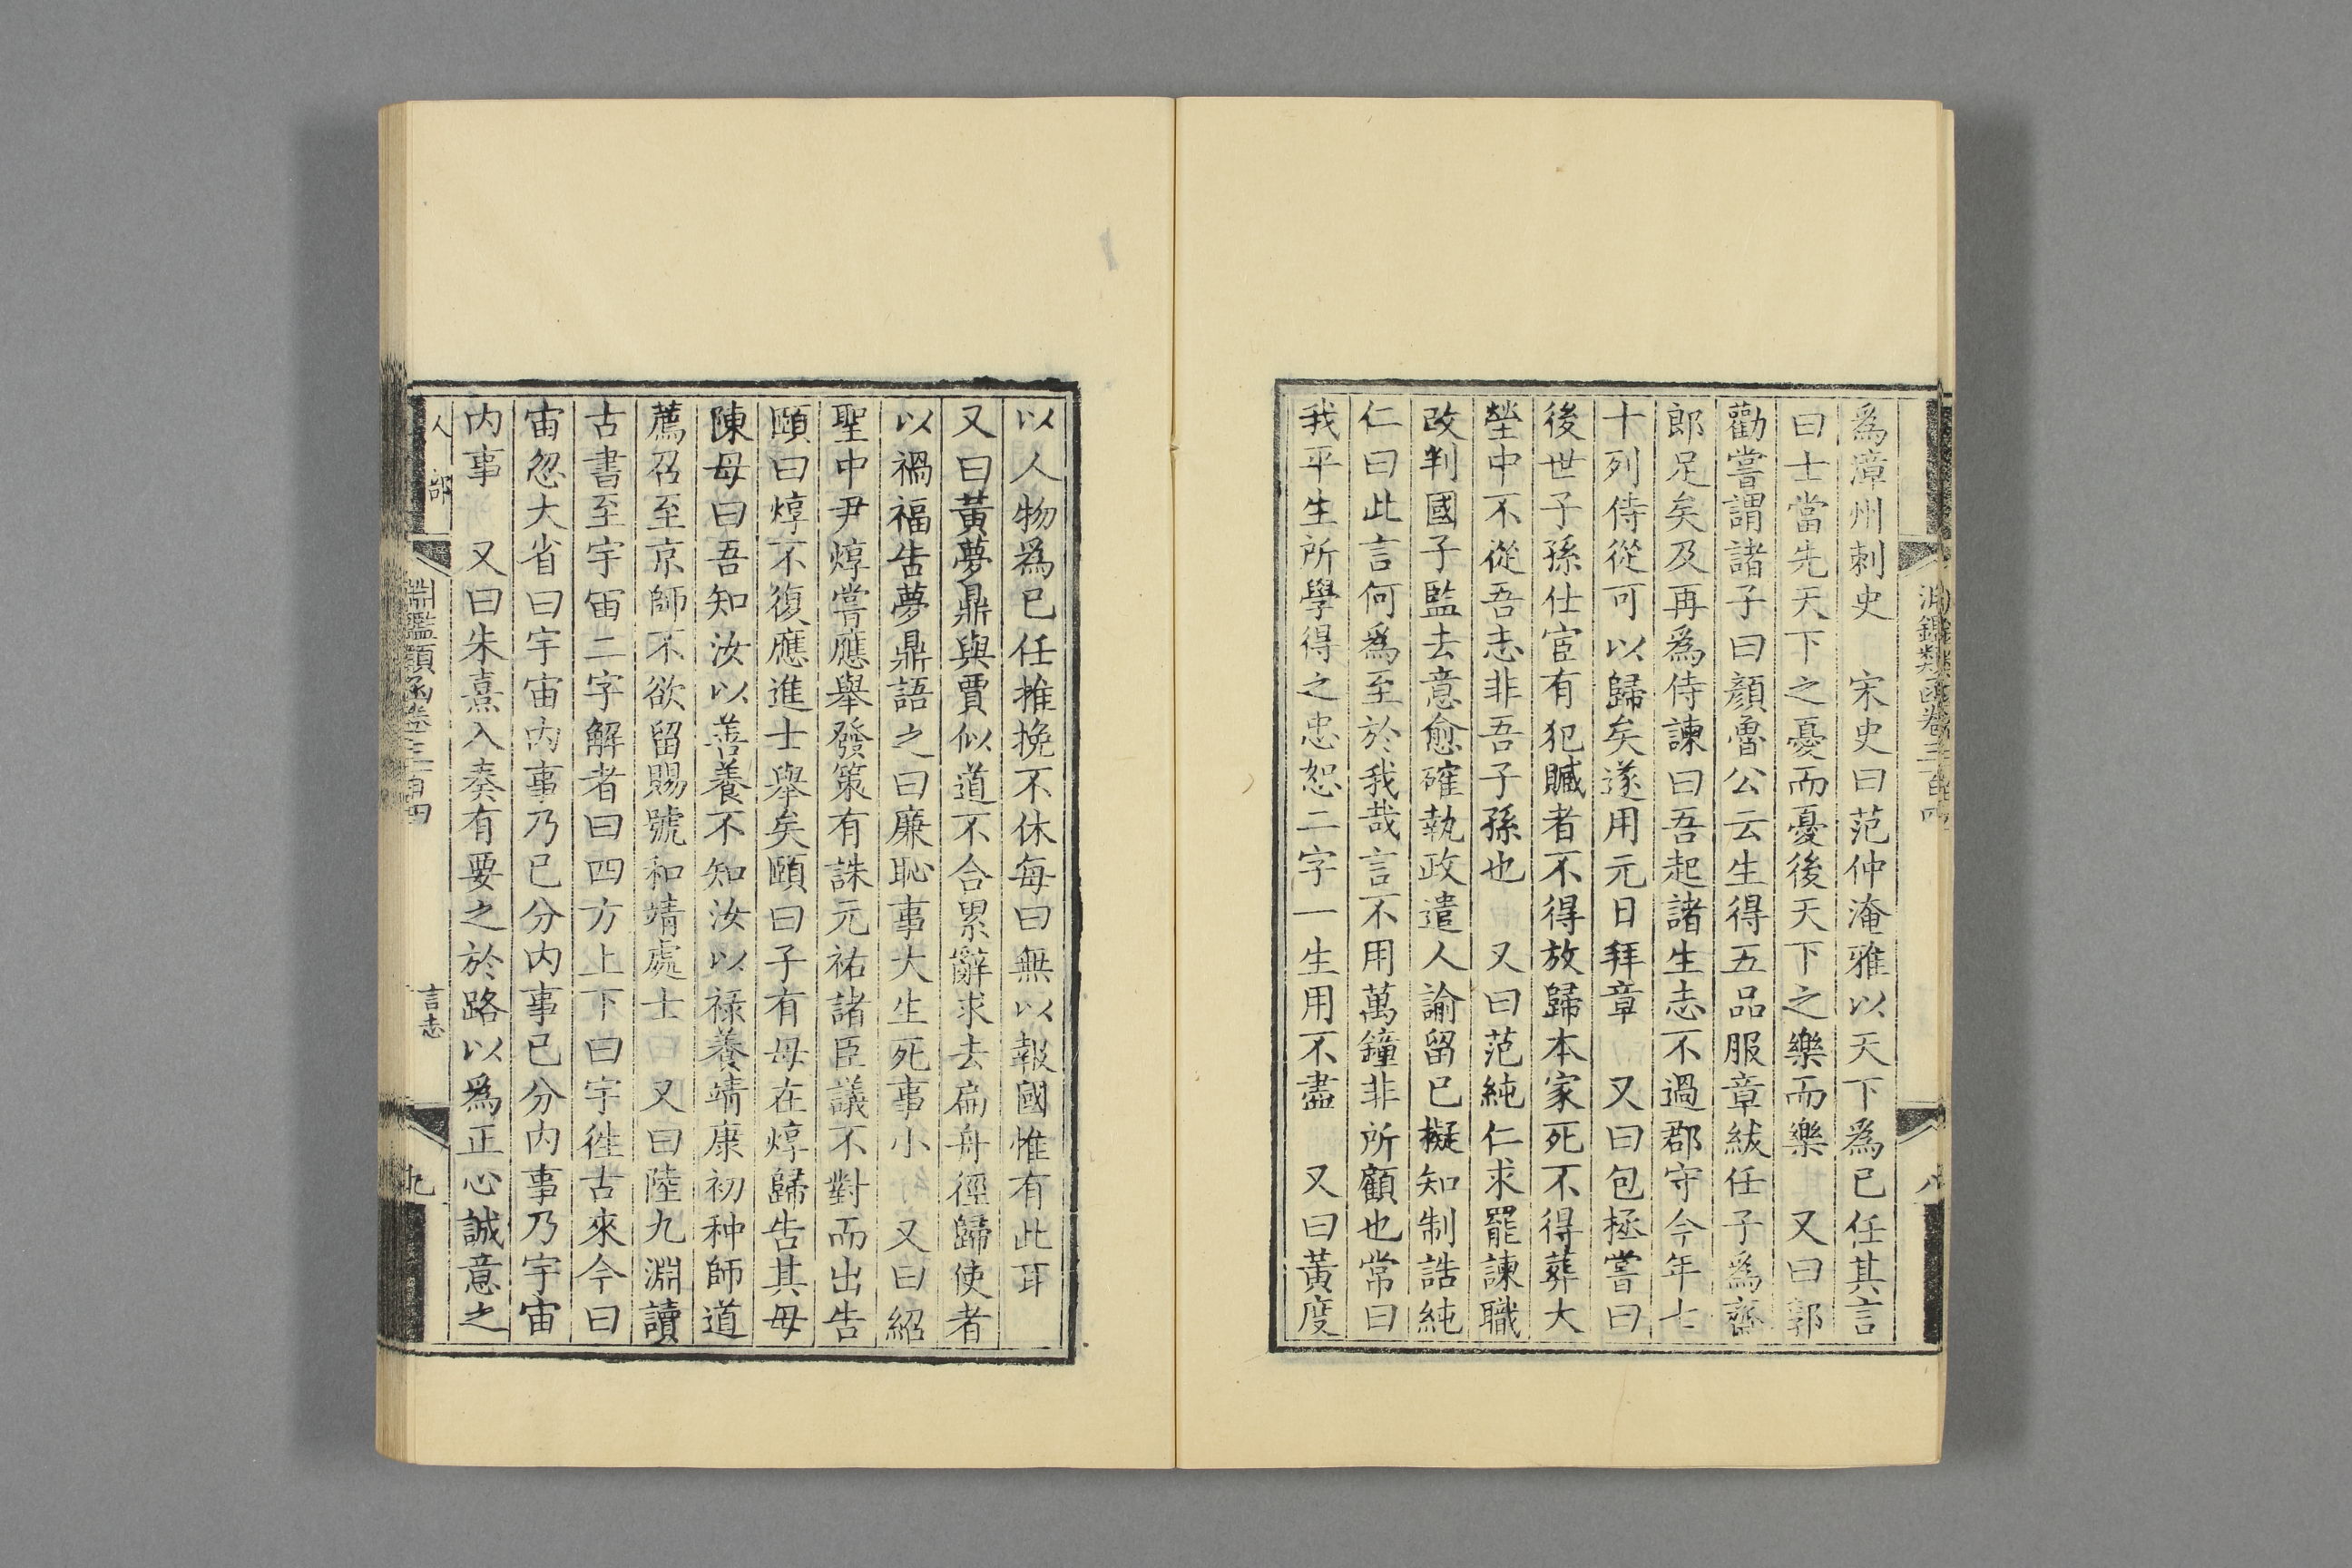 淵鑑類函卷三百四
八
爲漳州刺史　宋史曰范仲淹雅以天下爲己任其言
曰士當先天下之憂而憂後天下之樂而樂　又曰郭
勸嘗謂諸子曰顏魯公云生得五品服章紱任子爲齋
郎足矣及再爲侍諫曰吾起諸生志不過郡守今年七
十列侍從可以歸矣遂用元日拜章　又曰包拯嘗曰
後世子孫仕宦有犯贓者不得放歸本家死不得葬大
塋中不從吾志非吾子孫也　又曰范純仁求罷諫職
改判國子監去意愈確執政遣人諭留已擬知制誥純
仁曰此言何爲至於我哉言不用萬鐘非所顧也常曰
我平生所學得之忠恕二字一生用不盡　又曰黃度
以人物爲己任推挽不休每曰無以報國惟有此耳
又曰黃夢鼎與賈似道不合累辭求去扁舟徑歸使者
以禍福告夢鼎語之曰廉恥事大生死事小　又曰紹
聖中尹焞嘗應舉發策有誅元祐諸臣議不對而出告
頤曰焞不復應進士舉矣頤曰子有母在焞歸告其母
陳母曰吾知汝以善養不知汝以祿養靖康初种師道
薦召至京師不欲留賜號和靖處士　又曰陸九淵讀
古書至宇宙二字解者曰四方上下曰宇徃古來今曰
宙忽大省曰宇宙內事乃已分內事已分內事乃宇宙
內事　又曰朱熹入奏有要之於路以爲正心誠意之
人部
淵鑑類函卷三百四
言志
九